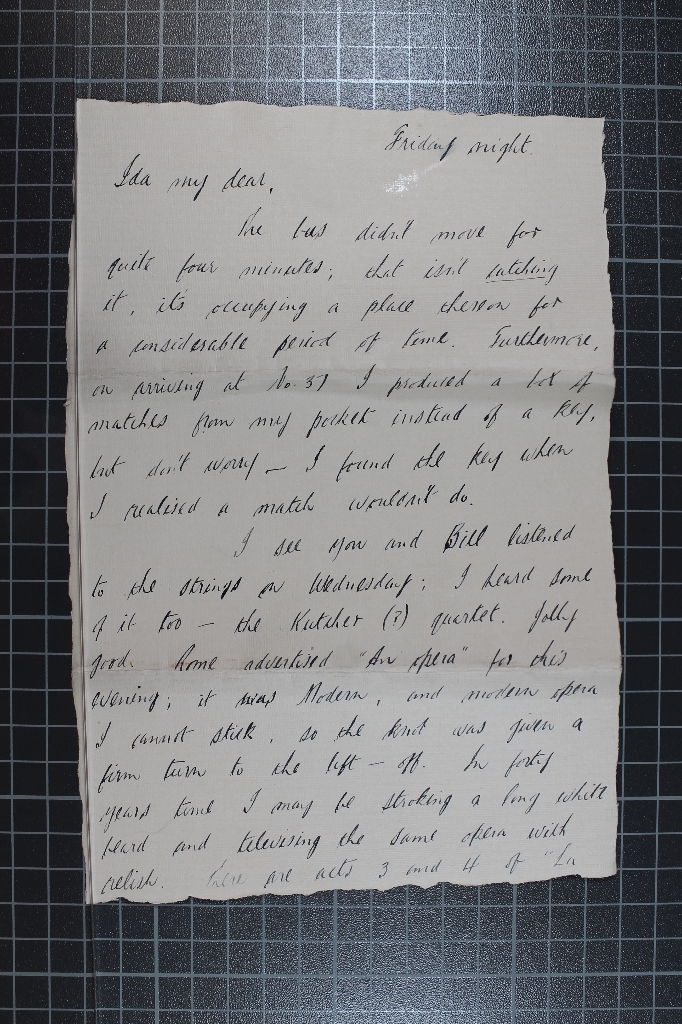 Friday night.
Ida my dear,
The bus didn't move for
quite four minutes; that isn't catching
it, it's occupying a place thereon for
a considerable period of time. Furthermore,
on arriving at No. 37 I produced a box of
matches from my pocket instead of a key,
but don't worry – I found the key when
I realised a match wouldn't do.
I see you and Bill listened
to the strings on Wednesday; I heard some
of it too – the Kutcher (?) quartet. Jolly
good. Rome advertised "An opera" for this
evening; it was Modern, and modern opera
I cannot stick, so the knob was given a
firm turn to the left – off. In forty
years time I may be stroking a long white
beard and televising the same opera with
relish. There are acts 3 and 4 of "La